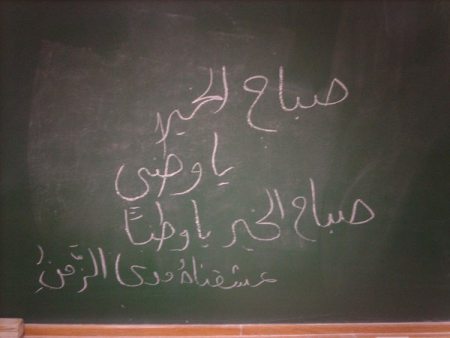 صباح الخير
يا وطني
صباح الخير يا وطنًا
عشقناهُ مدى الزَّمنِ!